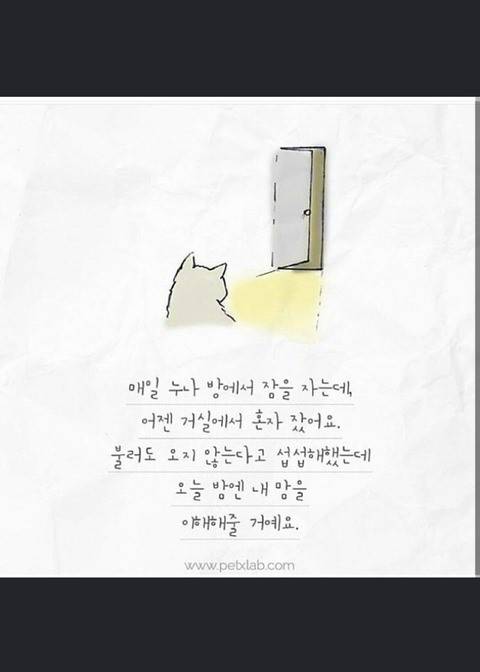 매일 누나 방에서 잠을 자는데,
어젠 거실에서 혼자 잤어요.
불러도 오지 않는다고 섭섭해했는데
오늘 밤엔 내 맘을
이해해줄 거예요.
www.petxlab.com